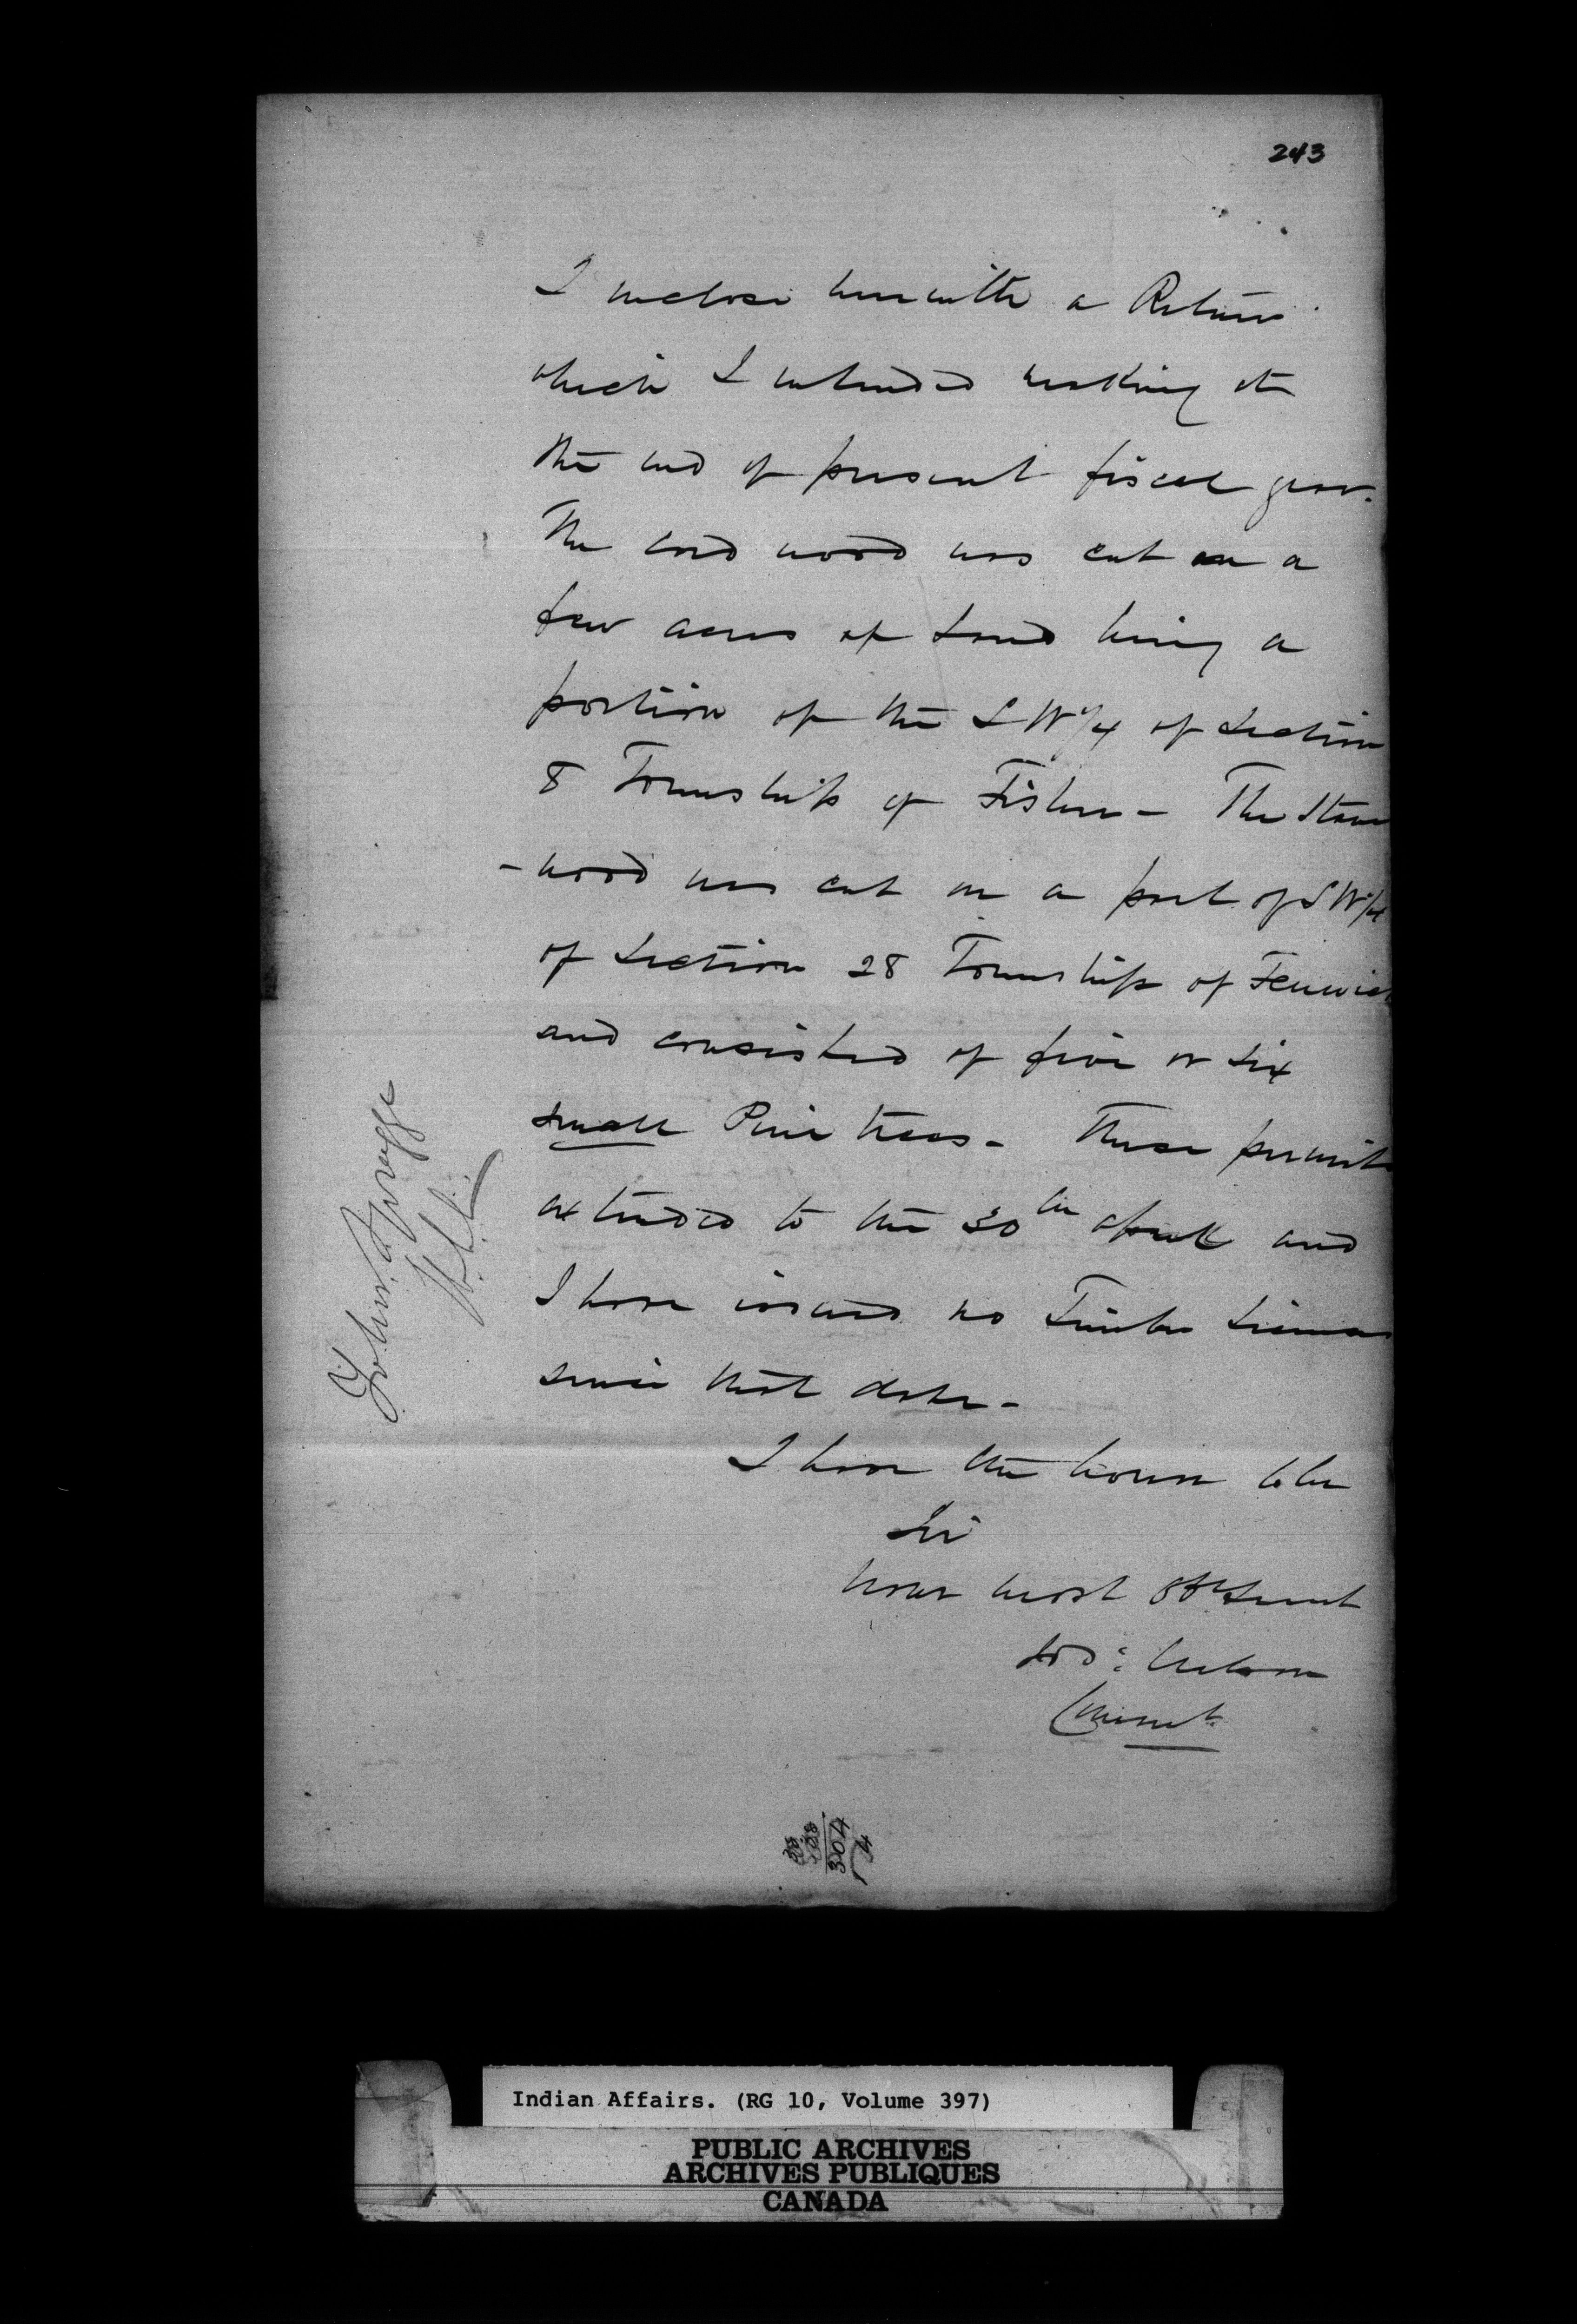 243
I inclose herewith a Return
which I intended making at
the end of present fiscal year.
The cord wood was cut on a
few acres of Land being a
portion of the S W 1/4 of Section
8 Township of Fisher - The Stave
- wood was cut on a part of S W 1/4
of Section 28 Township of Fenwick
and consisted of five or six
small Pine trees - These permits
extended to the 30th April and
I have issued no Timber License
since that date -
I have the honor to be
Sir
Your most Obt Servant
John
304
Indian Affairs. (RG 10, Volume 397)
PUBLIC ARCHIVES
ARCHIVES PUBLIQUES
CANADA